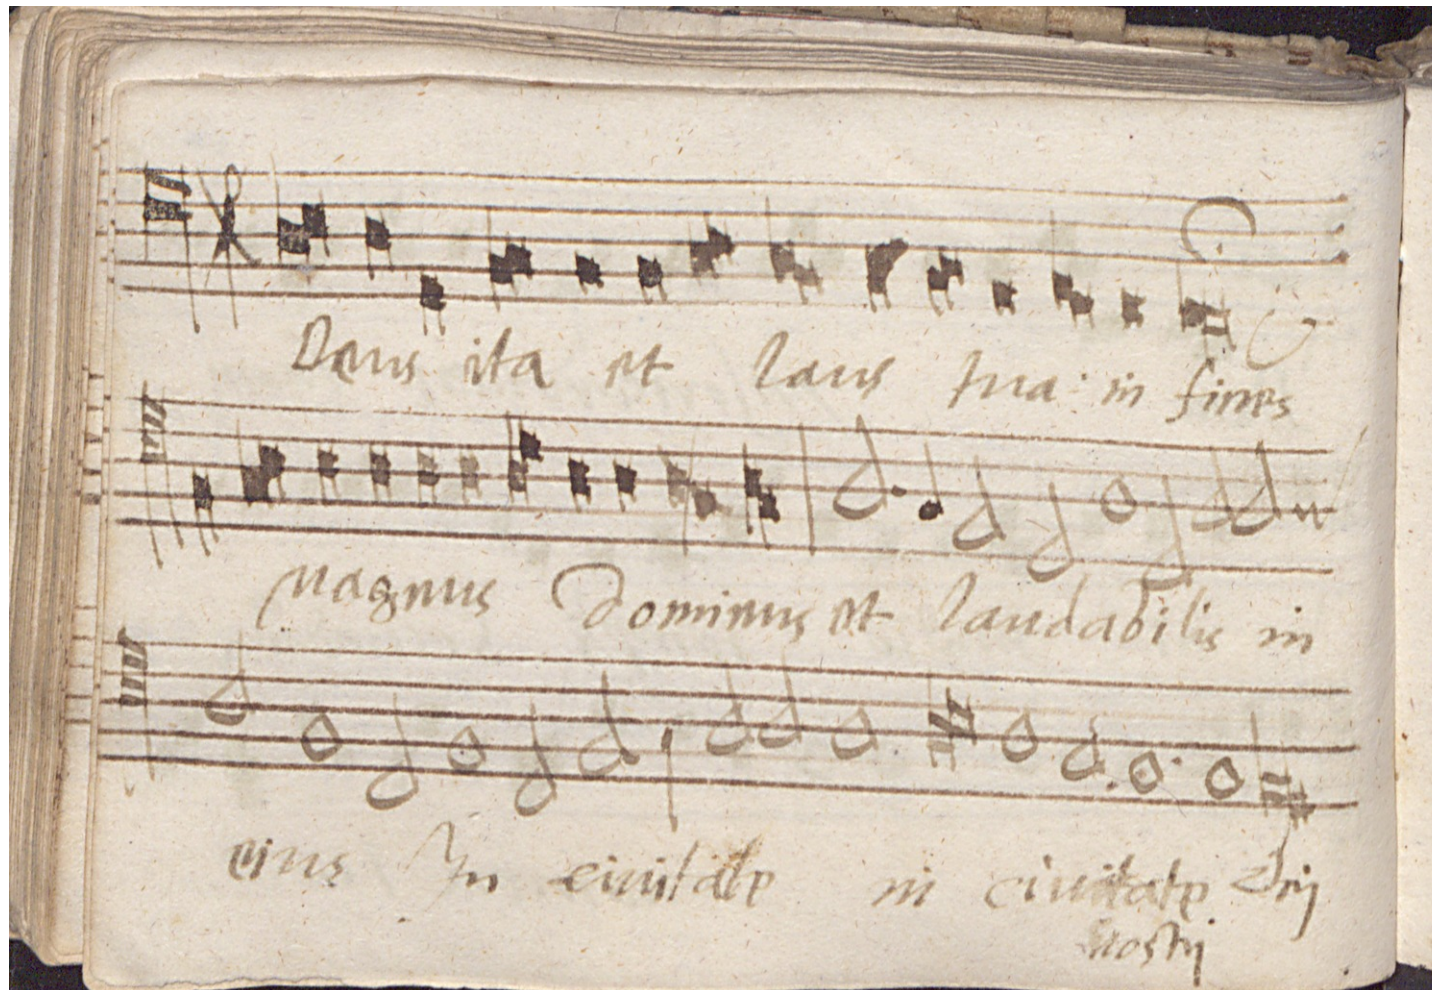 Deus ita et laus tua in fines
magnus Dominus et laudabilis in
eius In ciuitate in ciuitate Dei
nostri